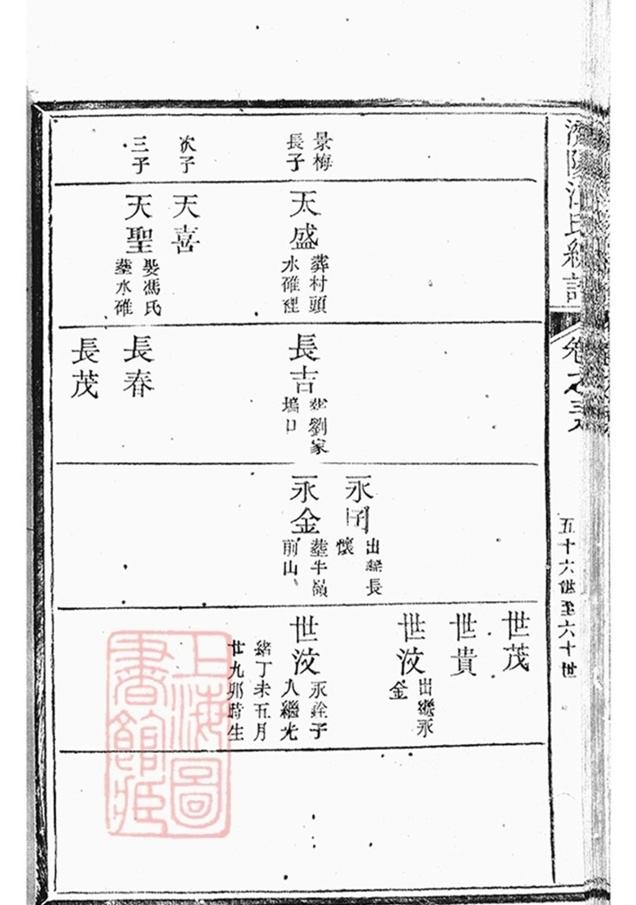 濟陽江氏統譜
卷之五
五十六世至六十世
景梅
長子
次子
三子
天盛
葬村頭
水碓裡
天喜
天聖
娶馮氏
葬水碓
長吉
葬劉家
塢口
長春
長茂
永
出繼長
懷
永金
葬牛嶺
前山
世茂
世貴
世汶
出繼永
金
世汶
永銓子
入繼光
緒丁未五月
廿九卯時生
上海圖
書館藏